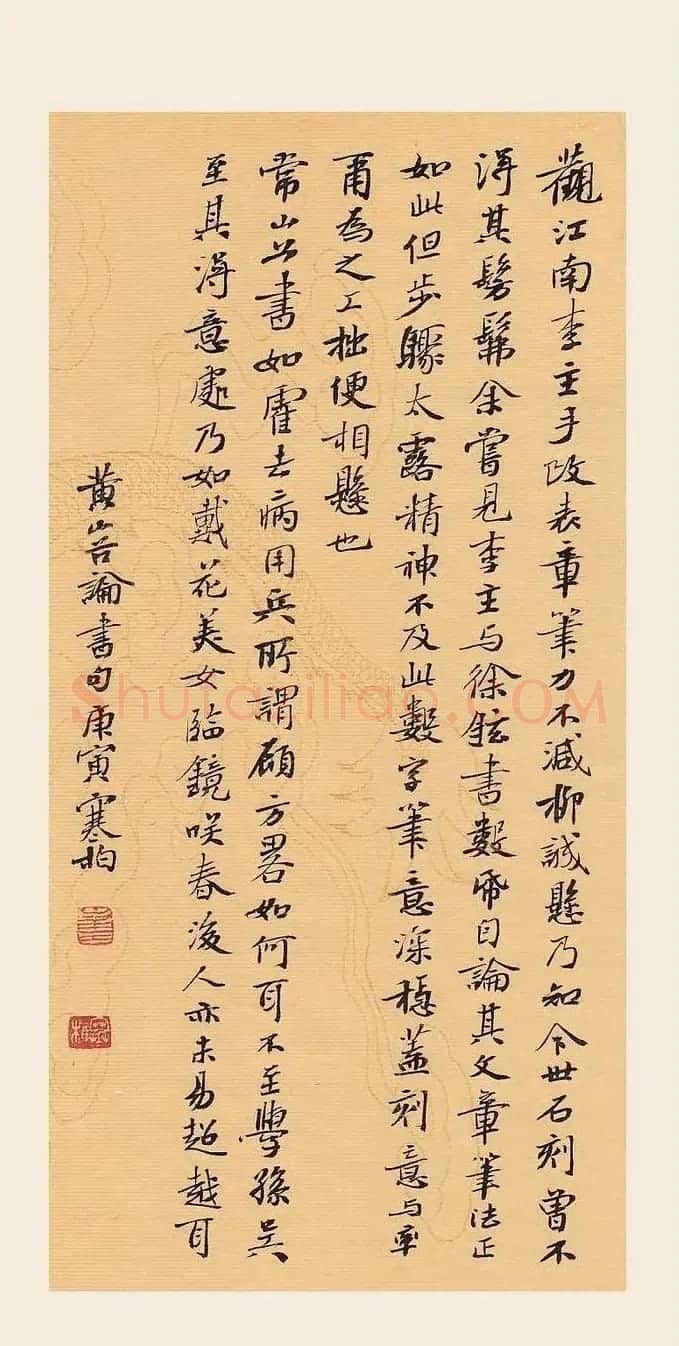 觀江南李主手改表章筆力不減柳誠懸乃知今世石刻曾不
得其髣髴余嘗見李主与徐鉉書數紙自論其文章筆法正
如此但步驟太露精神不及此數字筆意深穩蓋刻意与率
爾為之工拙便相懸也
常山公書如霍去病用兵所謂顧方略如何耳不至學孫吳
至其得意處乃如戴花美女臨鏡咲春後人亦未易超越耳
黃山谷論書句庚寅寒柏
Shufaziliao.com